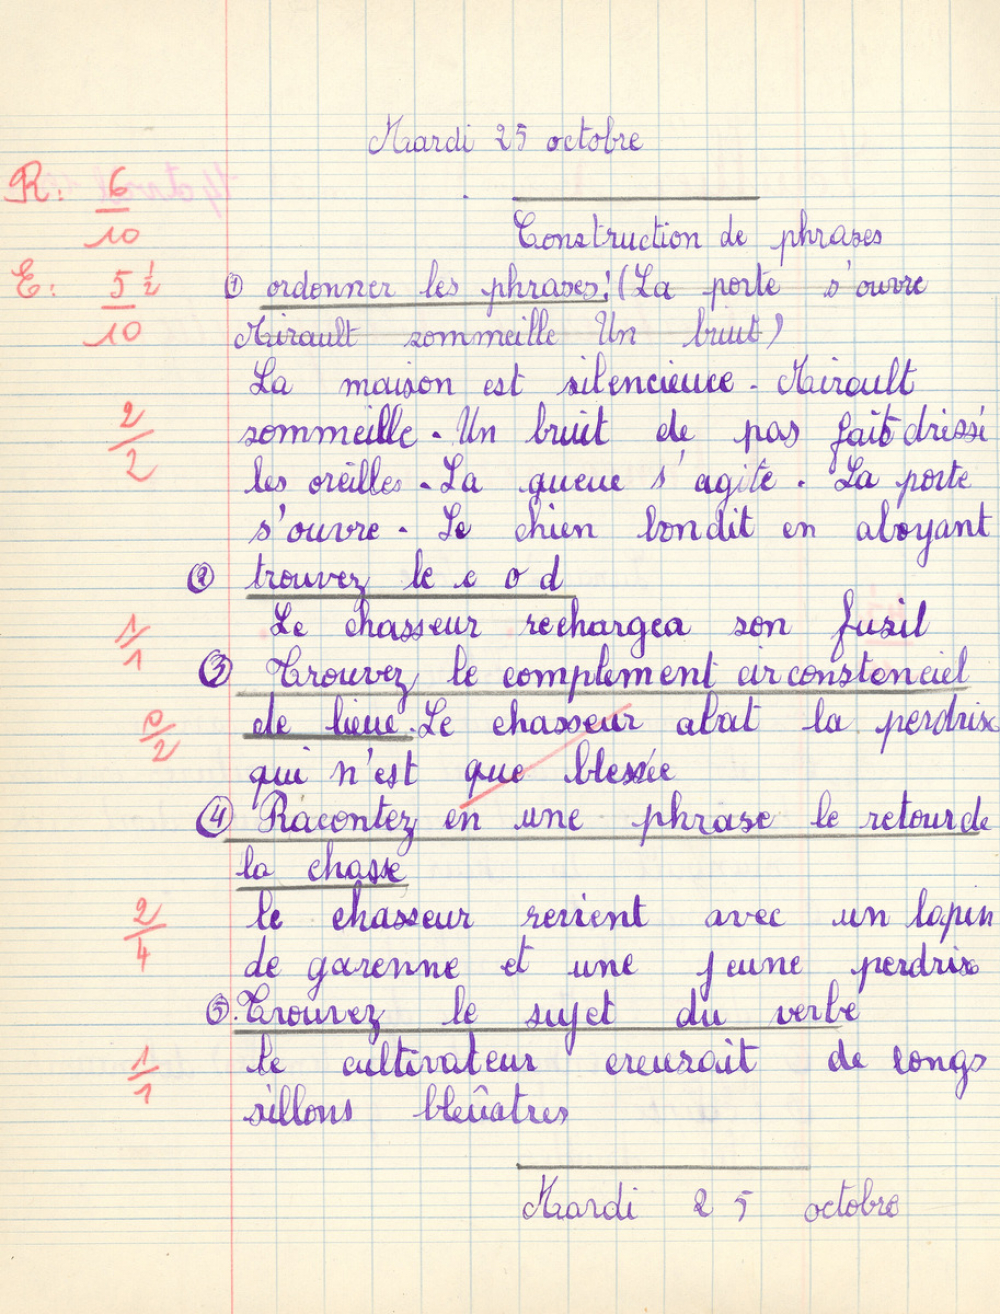 Mardi 25 octobre
R: 6/10
Construction de phrases
E: 5 1/2/10
① ordonner les phrases: (La porte s'ouvre
Mirault sommeille Un bruit)
La maison est silencieuce. Mirault
2/2
sommeille. Un bruit de pas fait dressé
les oreilles. La queue s'agite. La porte
s'ouvre. Le chien bondit en aboyant
② trouvez le c o d
1/1
Le chasseur rechargea son fusil
③ Trouvez le complement circonstenciel
0/2
de lieue. Le chasseur abat la perdrix
qui n'est que blessée
④ Racontez en une phrase le retour de
la chasse
2/4
le chasseur revient avec un lapin
de garenne et une jeune perdrix
⑤. Trouvez le sujet du verbe
1/1
le cultivateur creusait de longs
sillons bleûatres
Mardi 25 octobre